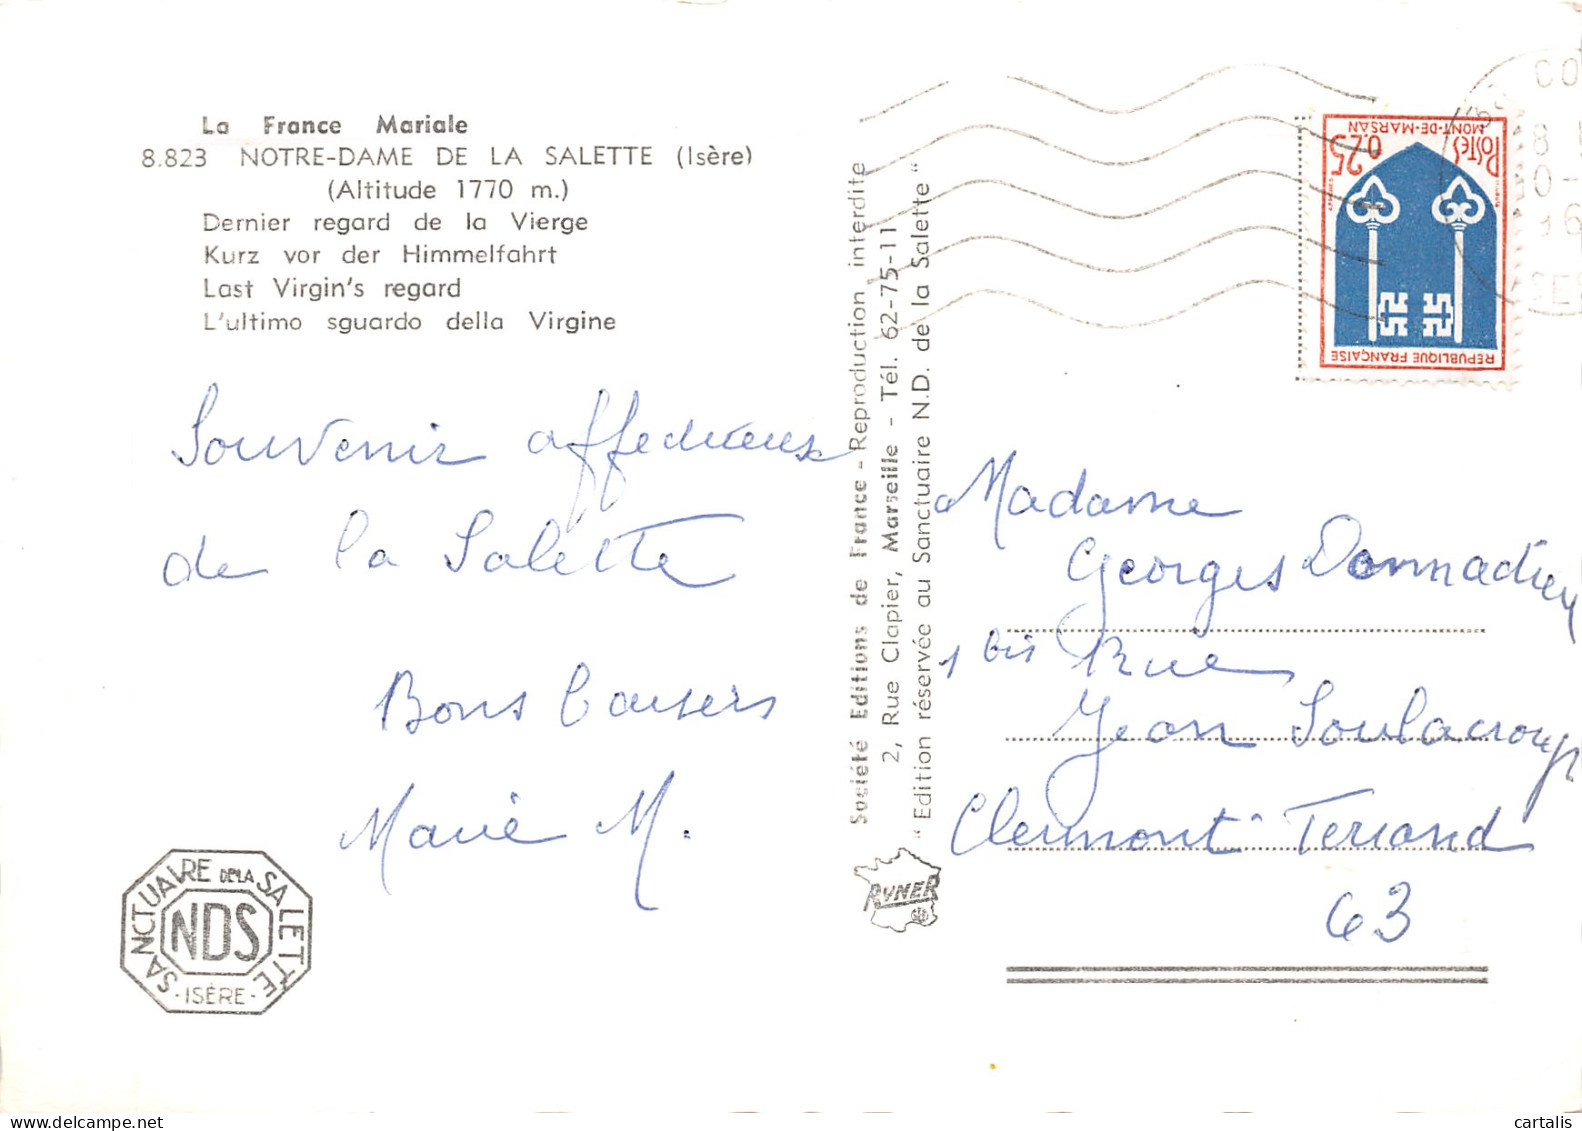 La France Mariale
8.823 NOTRE-DAME DE LA SALETTE (Isère)
(Altitude 1770 m.)
Dernier regard de la Vierge
Kurz vor der Himmelfahrt
Last Virgin's regard
L'ultimo sguardo della Virgine
Souvenir affectueux
de la Salette
Bons baisers
Marie M.
SANCTUAIRE DE LA SALETTE
NDS
- ISÈRE -
Société Editions de France - Reproduction interdite
2, Rue Clapier, Marseille - Tél. 62-75-11
"Edition réservée au Sanctuaire N.D. de la Salette"
RYNER
MONT-DE-MARSAN
POSTES
0.25
REPUBLIQUE FRANÇAISE
CO
Madame
Georges Donnadieu
1 bis Rue
Jean Soulacroup
Clermont-Ferrand
63
cartalis